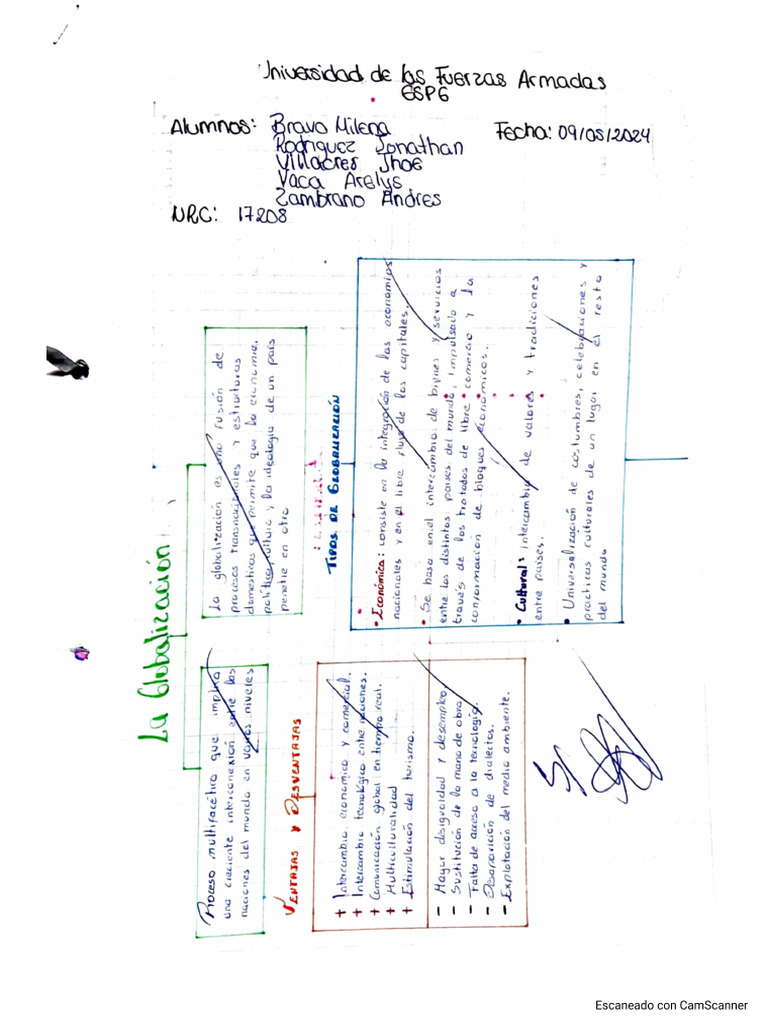 Universidad de las Fuerzas Armadas
ESPE
Alumnos: Bravo Milena
Rodriguez Jonathan
Villacres Jhoe
Vaca Arelys
Zambrano Andres
Fecha: 09/05/2024
NRC: 17208
La Globalización
Proceso multifacético que implica
una creciente interconexión entre las
naciones del mundo en varios niveles
La globalización es una fusión de
procesos transnacionales y estructuras
domésticas que permite que la economía,
política, cultura y la ideología de un país
penetre en otro
VENTAJAS Y DESVENTAJAS
+ Intercambio económico y comercial.
+ Intercambio tecnológico entre naciones.
+ Comunicación global en tiempo real.
+ Multiculturalidad
+ Estimulación del turismo.
- Mayor desigualdad y desempleo
- Sustitución de la mano de obra
- Falta de acceso a la tecnología.
- Desaparición de dialectos.
- Explotación del medio ambiente.
TIPOS DE GLOBALIZACIÓN
• Económica: consiste en la integración de las economías
nacionales y en el libre flujo de los capitales.
• Se basa en el intercambio de bienes y servicios
entre los distintos países del mundo, impulsado a
través de los tratados de libre comercio y la
conformación de bloques económicos.
• Cultural: intercambio de valores y tradiciones
entre países.
• Universalización de costumbres, celebraciones y
prácticas culturales de un lugar en el resto
del mundo
Escaneado con CamScanner